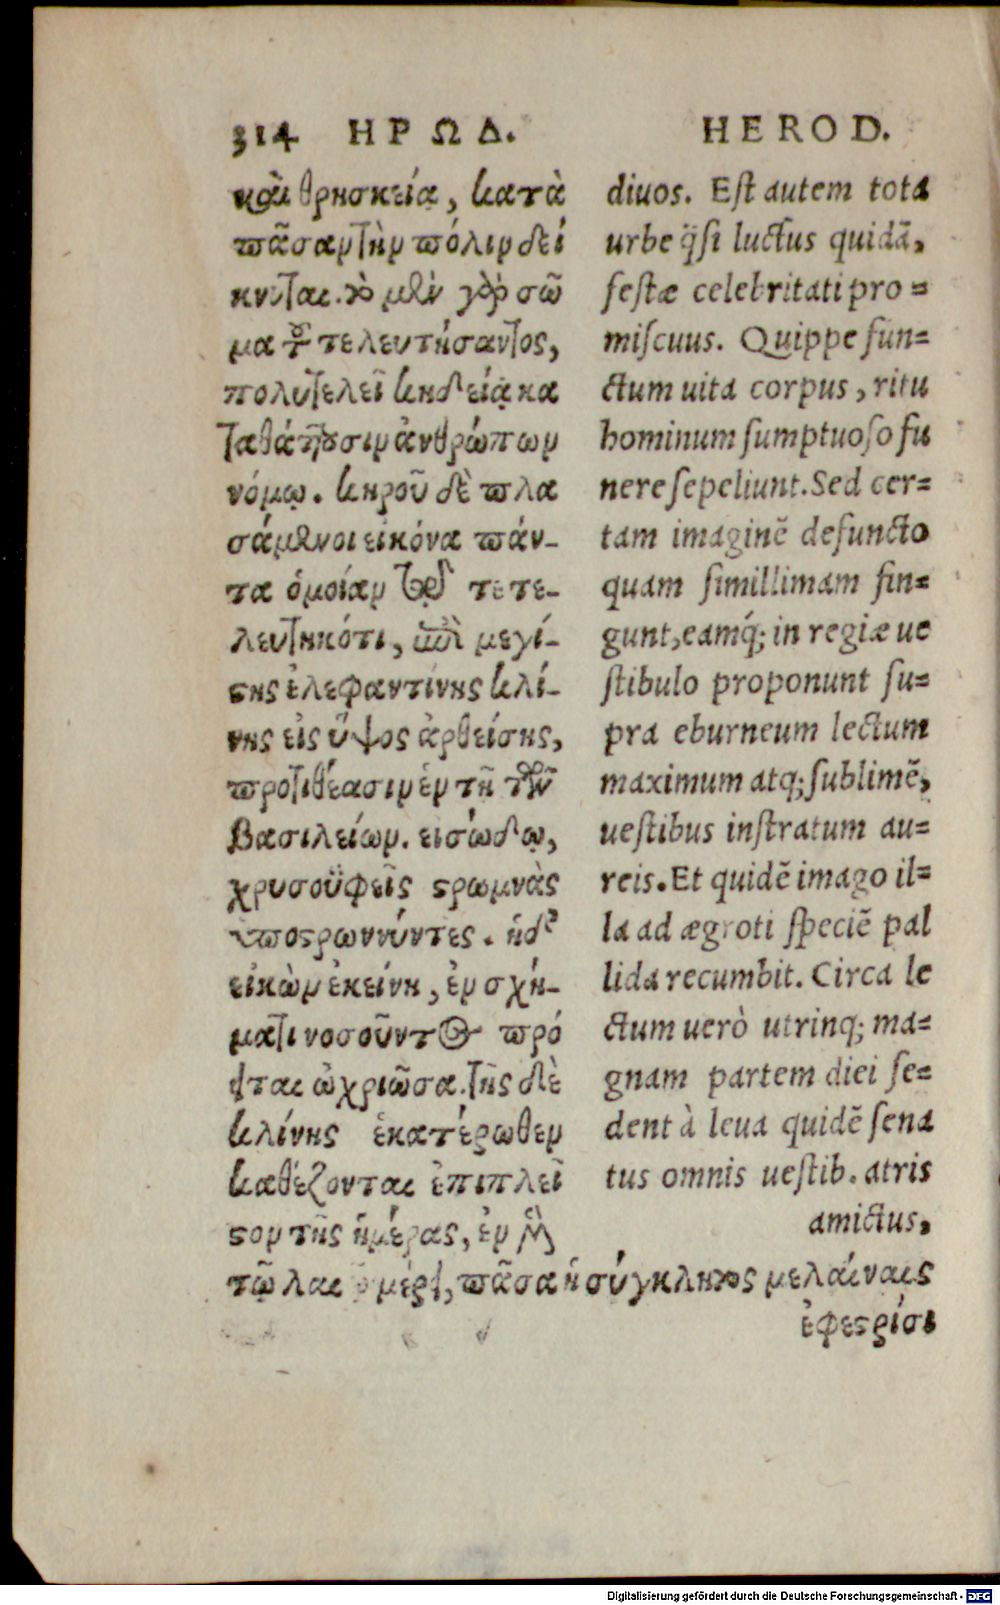 314 ΗΡΩΔ.
καὶ θρησκεία, κατὰ
πᾶσαν τὴν πόλιν δεί
κνυται. τὸ μὲν γὰρ σῶ
μα τοῦ τελευτήσαντος,
πολυτελεῖ κηδείᾳ κα
ταθάπτουσιν ἀνθρώπων
νόμῳ. κηροῦ δὲ πλα
σάμενοι εἰκόνα πάν-
τα ὁμοίαν τῷ τετε-
λευτηκότι, ἐπὶ μεγί-
στης ἐλεφαντίνης κλί-
νης εἰς ὕψος ἀρθείσης,
προτιθέασιν ἐν τῇ τῶν
βασιλείων. εἰσώδῳ,
χρυσοϋφεῖς στρωμνὰς
ὑποστρωννύντες. ἡ δὲ
εἰκὼν ἐκείνη, ἐν σχή-
ματι νοσοῦντος πρό
κειται ὠχριῶσα. τῆς δὲ
κλίνης ἑκατέρωθεν
καθέζονται ἐπιπλεῖ
στον τῆς ἡμέρας, ἐν μὲν
τῷ λαιῷ μέρει, πᾶσα ἡ σύγκλητος μελαίναις
ἐφεστρίσι
HEROD.
diuos. Est autem tota
urbe q̃si luctus quidã,
festæ celebritati pro=
miscuus. Quippe fun=
ctum uita corpus, ritu
hominum sumptuoso fu
nere sepeliunt. Sed cer=
tam imaginẽ defuncto
quam simillimam fin=
gunt, eamq́; in regiæ ue
stibulo proponunt su=
pra eburneum lectum
maximum atq; sublimẽ,
uestibus instratum au=
reis. Et quidẽ imago il=
la ad ægroti speciẽ pal
lida recumbit. Circa le
ctum uerò utrinq; ma=
gnam partem diei se=
dent à leua quidẽ sena
tus omnis uestib. atris
amictus,
Digitalisierung gefördert durch die Deutsche Forschungsgemeinschaft - DFG